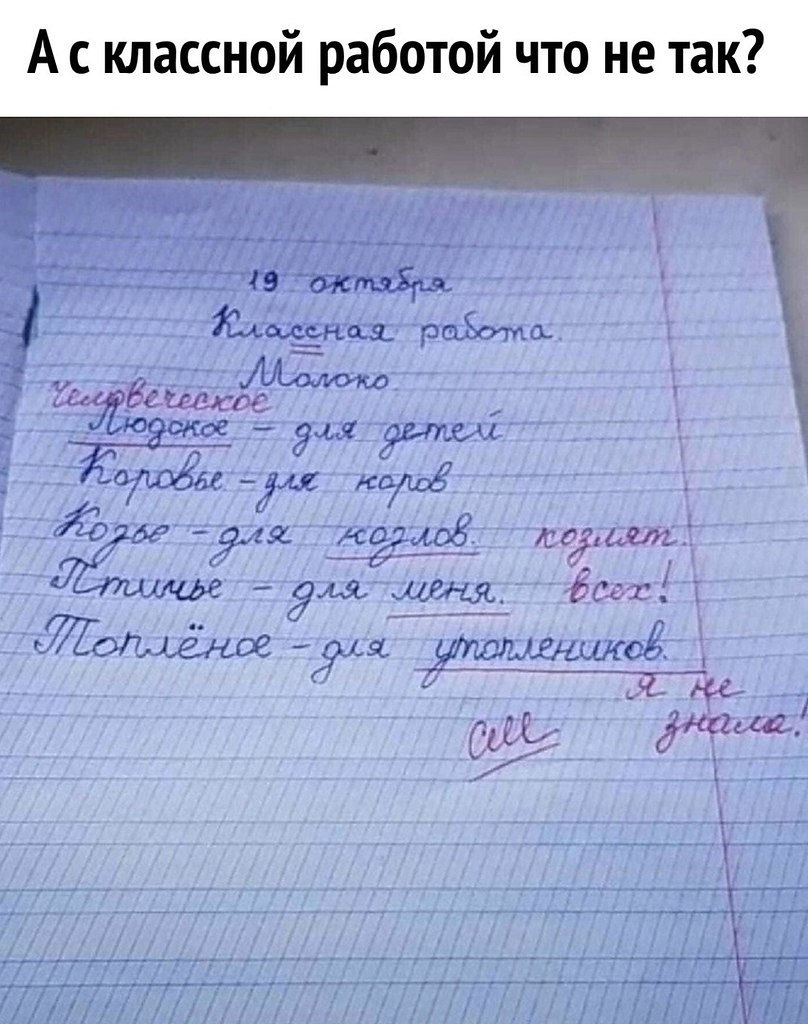 А с классной работой что не так?
19 октября
Классная работа.
Молоко
Человеческое
Людское – для детей
Коровье – для коров
Козье – для козлов. козлят.
Птичье – для меня. всех!
Топлёное – для утоплеников.
я не
см знала!